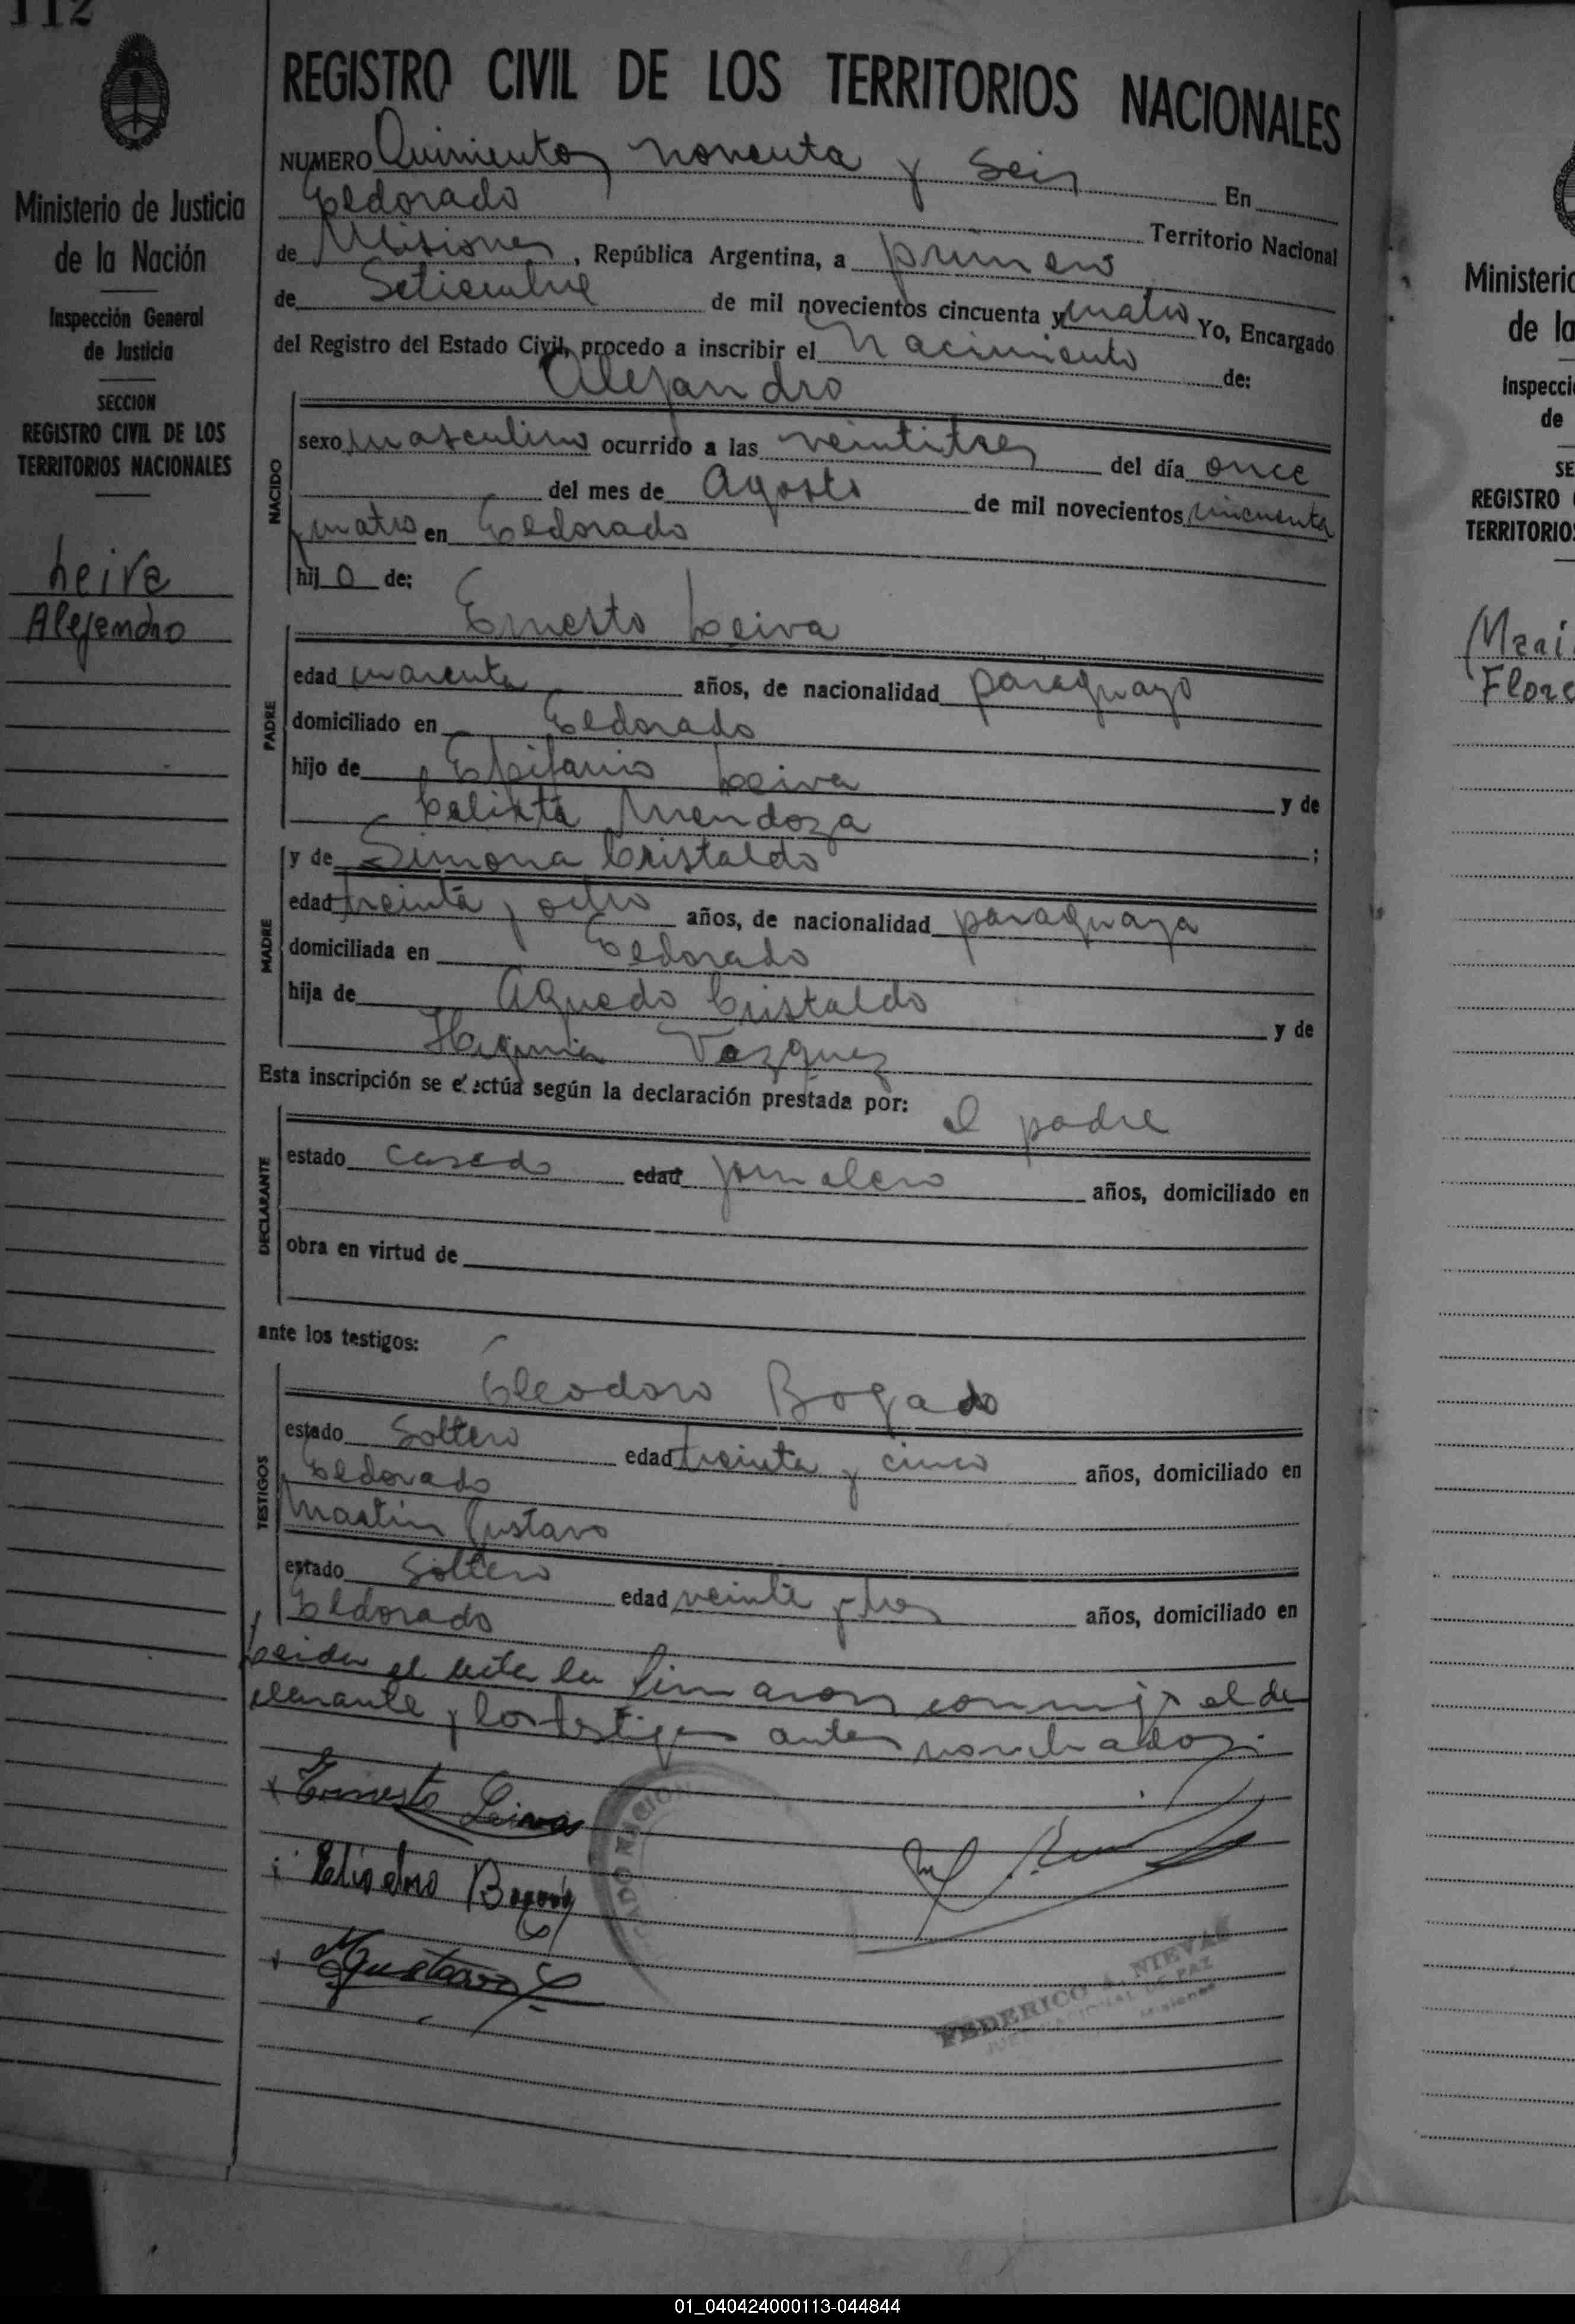 112
Ministerio de Justicia
de la Nación
Inspección General
de Justicia
SECCION
REGISTRO CIVIL DE LOS
TERRITORIOS NACIONALES
Leiva
Alejandro
REGISTRO CIVIL DE LOS TERRITORIOS NACIONALES
NUMERO Quinientos noventa y seis En
Eldorado Territorio Nacional
de Misiones, República Argentina, a primero
de Setiembre de mil novecientos cincuenta y cuatro Yo, Encargado
del Registro del Estado Civil, procedo a inscribir el nacimiento de:
Alejandro
NACIDO
sexo masculino ocurrido a las veintitres del día once
del mes de Agosto de mil novecientos cincuenta
y cuatro en Eldorado
hijo de:
Ernesto Leiva
PADRE
edad cuarenta años, de nacionalidad paraguayo
domiciliado en Eldorado
hijo de Epifanio Leiva y de
Calixta Mendoza ;
y de Simona Cristaldo
MADRE
edad treinta y ocho años, de nacionalidad paraguaya
domiciliada en Eldorado
hija de Aguedo Cristaldo y de
Higinia Vazquez
Esta inscripción se efectúa según la declaración prestada por: el padre
DECLARANTE
estado casado edad jornalero años, domiciliado en
obra en virtud de
ante los testigos:
Eleodoro Bogado
TESTIGOS
estado soltero edad treinta y cinco años, domiciliado en
Eldorado
Martin Gustavo
estado soltero edad veinte y tres años, domiciliado en
Eldorado
Leida el acta la firmaron conmigo el de
clarante y los testigos antes nombrados.
Ernesto Leiva
Eliodoro
FEDERICO A. NIEVAS
JUEZ NACIONAL DE PAZ
Misiones
Ministerio
de la
Inspecci
de
SE
REGISTRO
TERRITORIOS
Flore
01_040424000113-044844